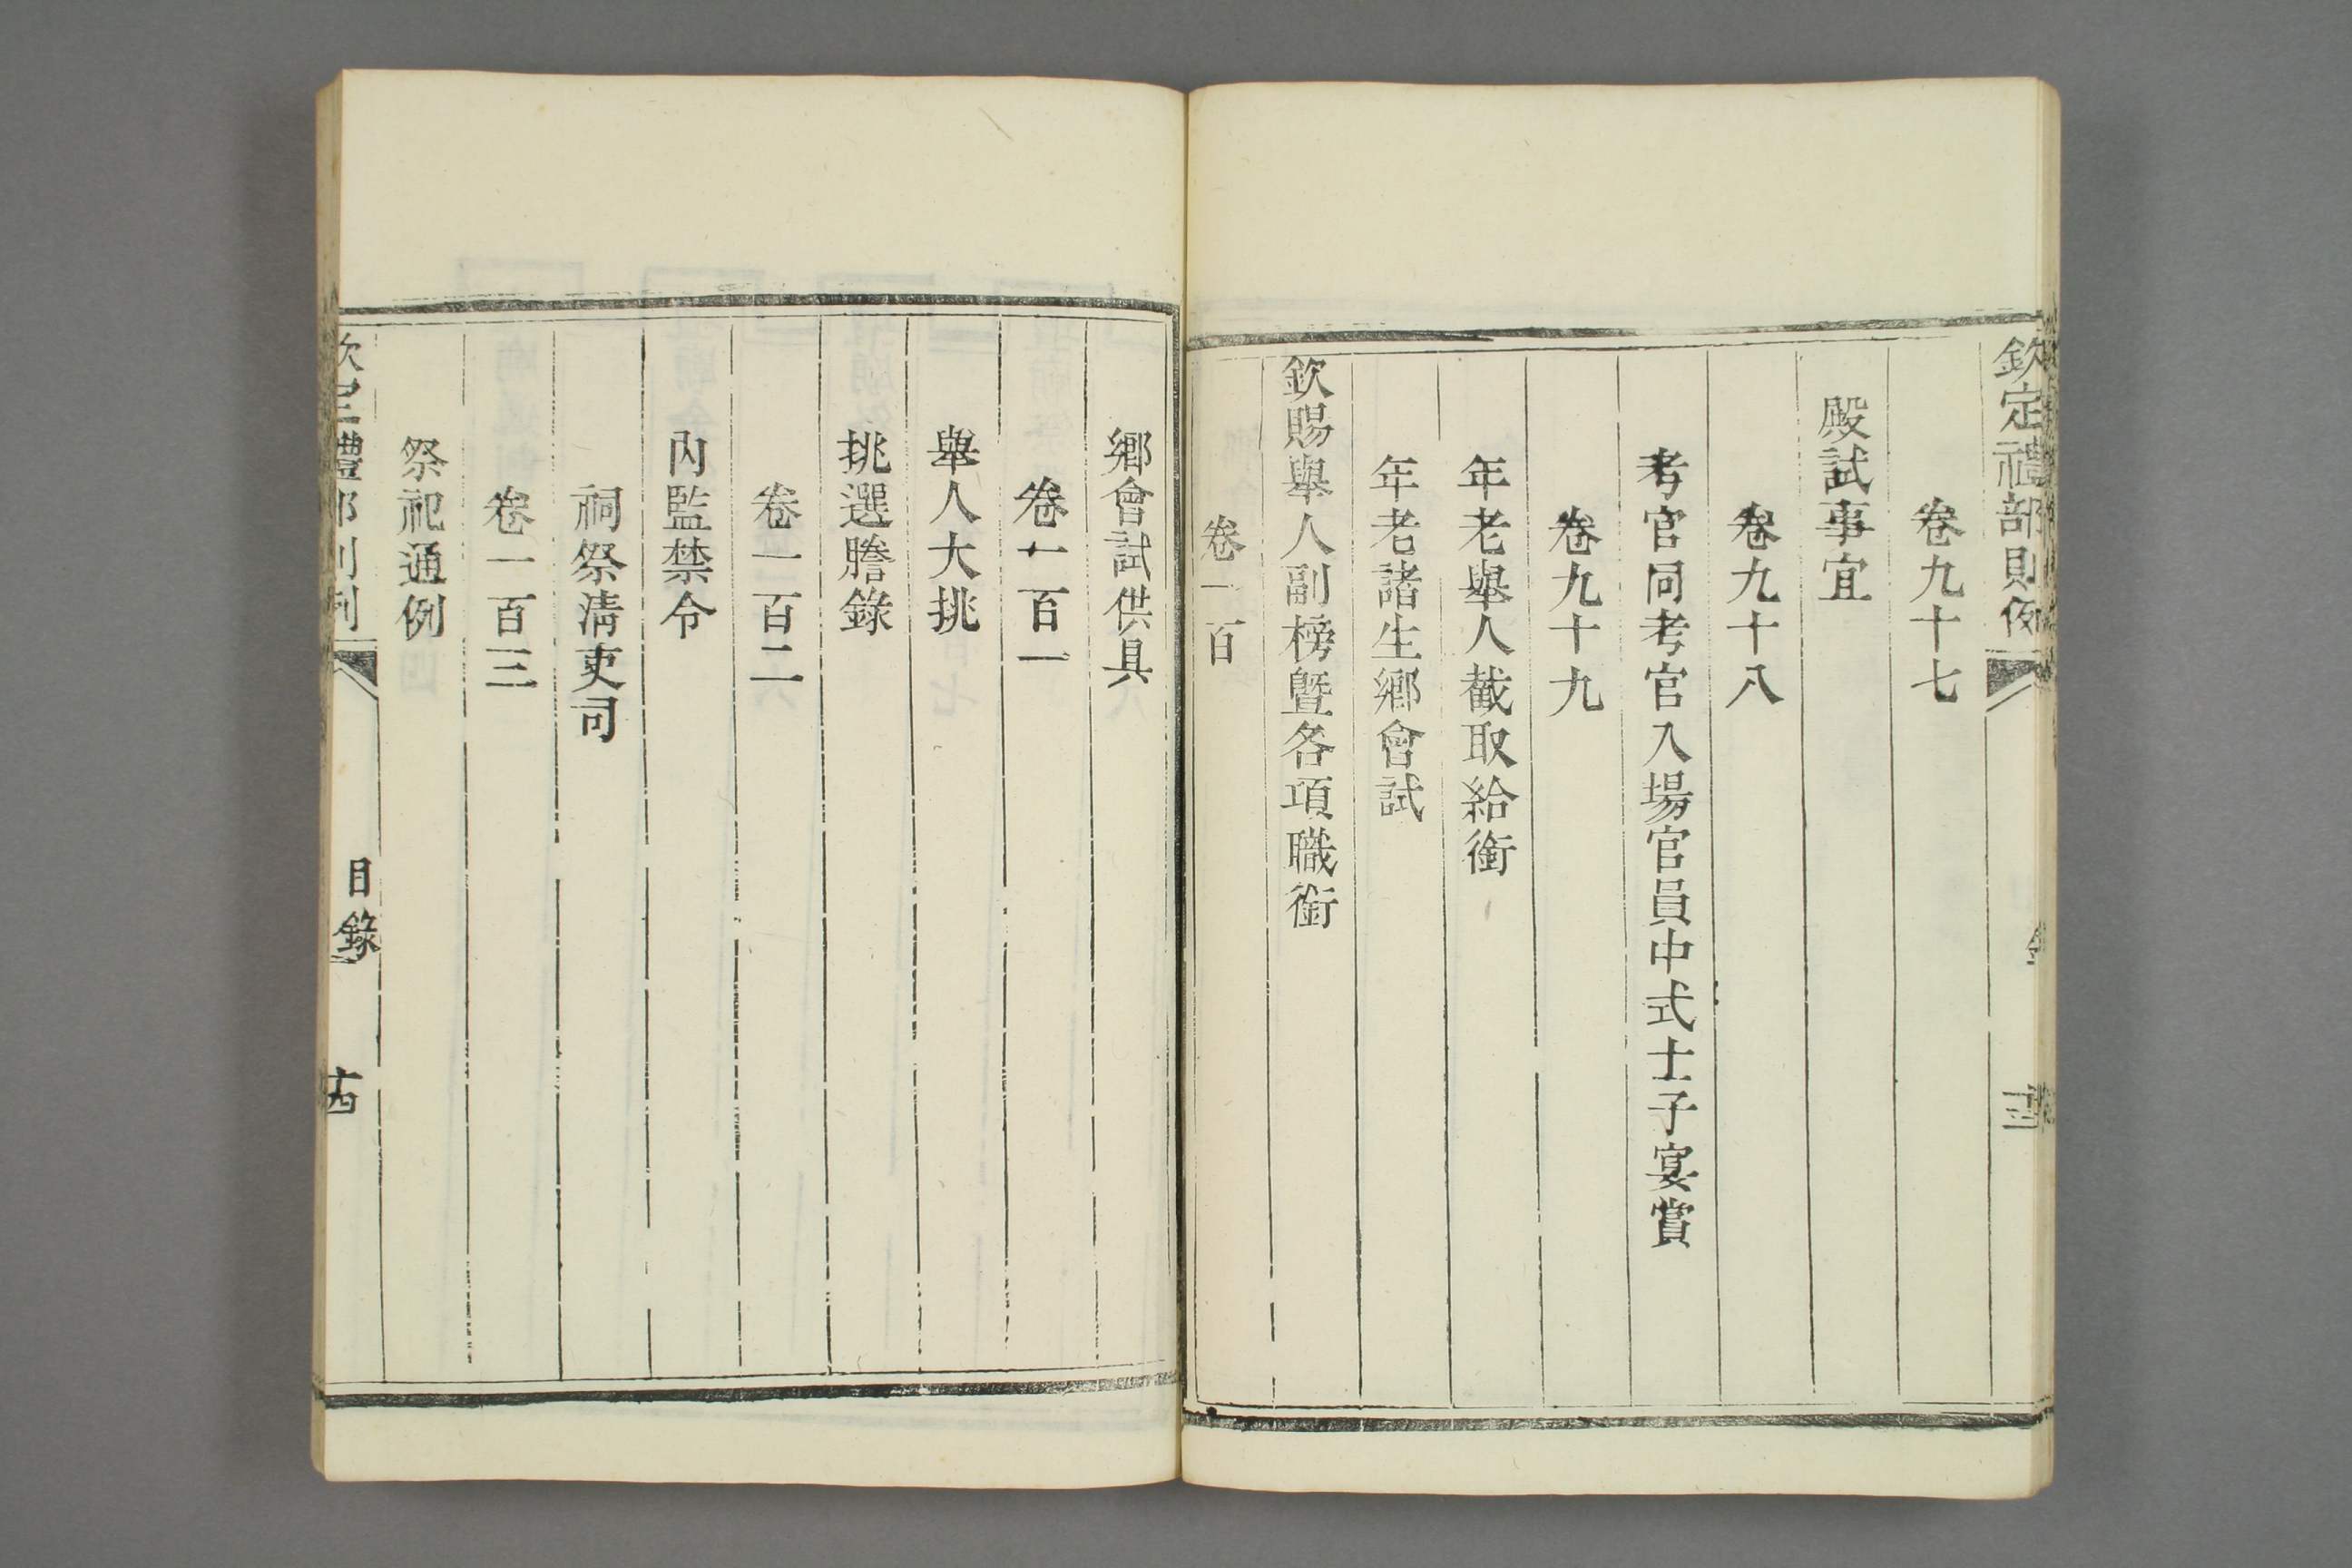 欽定禮部則例
卷九十七
殿試事宜
卷九十八
考官同考官入場官員中式士子宴賞
卷九十九
年老舉人截取給銜
年老諸生鄉會試
欽賜舉人副榜曁各項職銜
卷一百
鄉會試供具
卷一百一
舉人大挑
挑選謄錄
卷一百二
內監禁令
祠祭淸吏司
卷一百三
祭祀通例
欽定禮部則例 目錄 十四